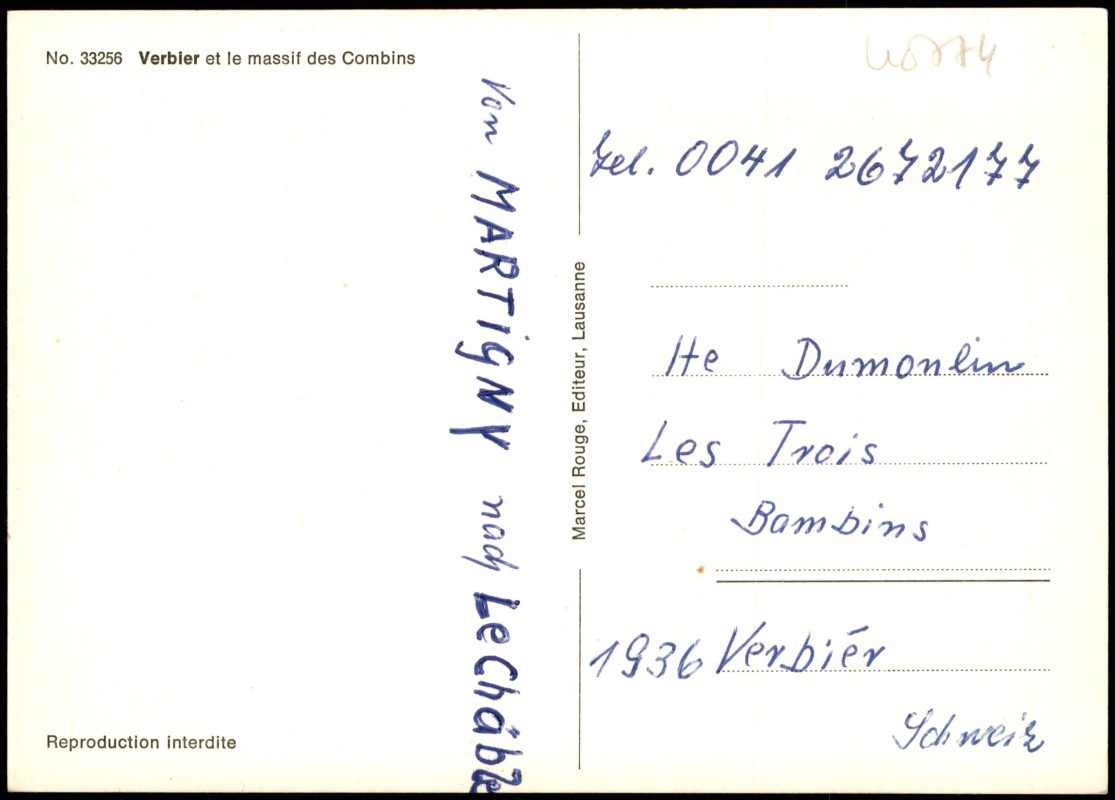 No. 33256 Verbier et le massif des Combins
Von MARTIGNY nach Le Châble
Reproduction interdite
Marcel Rouge, Editeur, Lausanne
Tel. 0041 2672177
Dumoulin
Les Trois
Bambins
1936 Verbiér
Schweiz